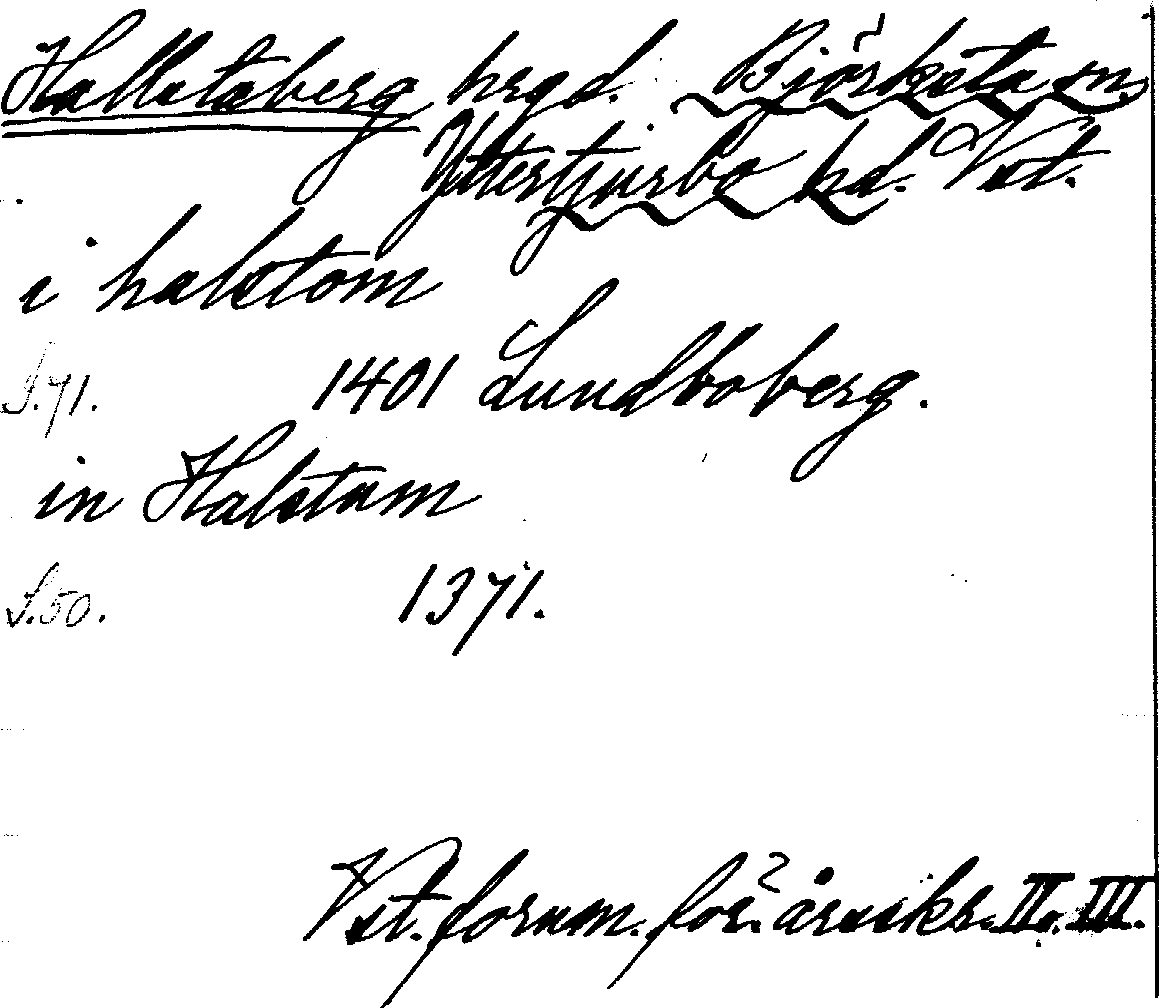 Hallstaberg hrgd. Björksta sn.
Yttertjurbo hd. Vst.
i halstom
S.71. 1401 Lundboberg.
in Halstum
S.50. 1371.
Vst. fornm. för. årsskr. II o. III.